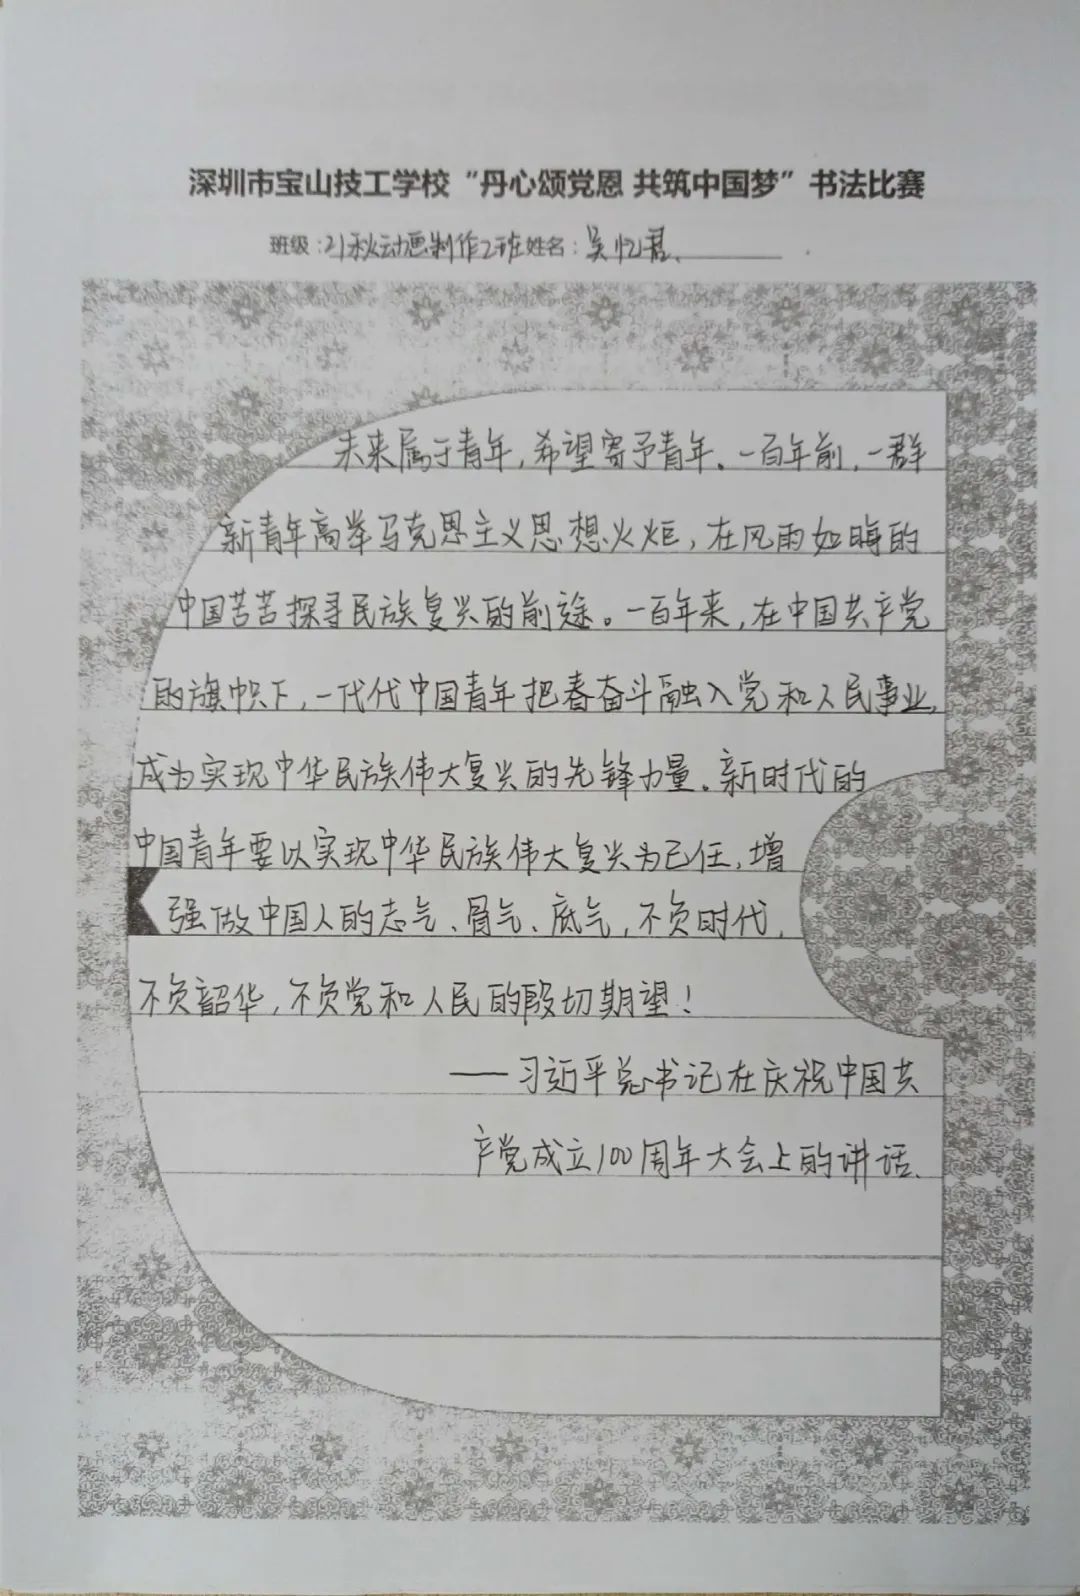 深圳市宝山技工学校“丹心颂党恩 共筑中国梦”书法比赛
班级：21秋动画制作2班姓名：吴忆君、
未来属于青年，希望寄予青年。一百年前，一群
新青年高举马克思主义思想火炬，在风雨如晦的
中国苦苦探寻民族复兴的前途。一百年来，在中国共产党
的旗帜下，一代代中国青年把春奋斗融入党和人民事业，
成为实现中华民族伟大复兴的先锋力量。新时代的
中国青年要以实现中华民族伟大复兴为己任，增
强做中国人的志气、骨气、底气，不负时代，
不负韶华，不负党和人民的殷切期望！
——习近平总书记在庆祝中国共
产党成立100周年大会上的讲话、